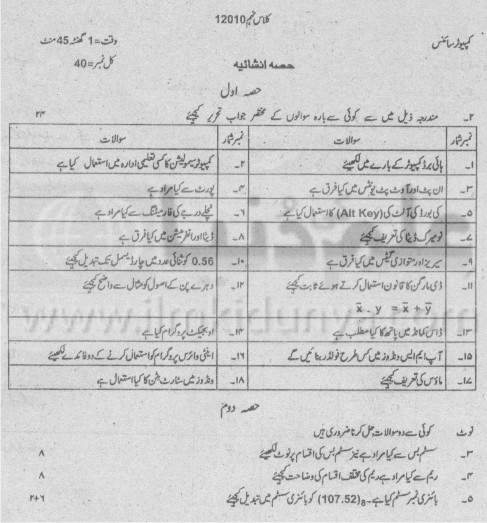 کلاس نہم 12010
کمپیوٹر سائنس
وقت=1 گھنٹہ 45 منٹ
کل نمبر=40
حصہ انشائیہ
حصہ اول
۲۔ مندرجہ ذیل میں سے کوئی سے بارہ سوالوں کے مختصر جواب تحریر کیجئیے ۲۴
نمبر شمار سوالات نمبر شمار سوالات
۱۔ ہائی برڈ کمپیوٹر کے بارے میں لکھیئے ۲۔ کمپیوٹر سیمولیشن کا کسی تعلیمی ادارہ میں استعمال کیا ہے
۳۔ ان پٹ اور آؤٹ پٹ یونٹس میں کیا فرق ہے ۴۔ پورٹ سے کیا مراد ہے
۵۔ کی بورڈ کی آلٹ کی (Alt Key) کا استعمال کیا ہے ۶۔ نچلے درجے کی فارمیٹنگ سے کیا مراد ہے
۷۔ نومیرک ڈیٹا کی تعریف کیجئیے ۸۔ ڈیٹا اور انفارمیشن میں کیا فرق ہے
۹۔ سیریز اور متوازی گیٹس میں کیا فرق ہے ۱۰۔ 0.56 کو ثنائی عدد میں چار ڈیسیمل تک تبدیل کیجئیے
۱۱۔ ڈی مارگن کا قانون استعمال کرتے ہوئے ثابت کیجئیے ۱۲۔ دہرے پن کے اصول کو مثال سے واضح کیجئیے
x̅ . y = x̅ + y̅
۱۳۔ ڈاس کمانڈ میں پاتھ کا کیا مطلب ہے ۱۴۔ اوبجیکٹ پروگرام کیا ہے
۱۵۔ آپ ایم ایس ونڈوز میں کس طرح فولڈر بنائیں گے ۱۶۔ اینٹی وائرس پروگرام کو استعمال کرنے کے دو فائدے لکھیئے
۱۷۔ ماؤس کی تعریف کیجئیے ۱۸۔ ونڈوز میں سٹارٹ بٹن کا کیا استعمال ہے
حصہ دوم
نوٹ کوئی سے دو سوالات حل کرنا ضروری ہیں
۳۔ سسٹم بس سے کیا مراد ہے نیز سسٹم بس کی اقسام پر نوٹ لکھیئے ۸
۴۔ ریم سے کیا مراد ہے ریم کی مختلف اقسام کی وضاحت کیجئیے ۸
۵۔ بائنری نمبر سسٹم کیا ہے۔ (107.52)₈ کو بائنری سسٹم میں تبدیل کیجئیے ۲+۶